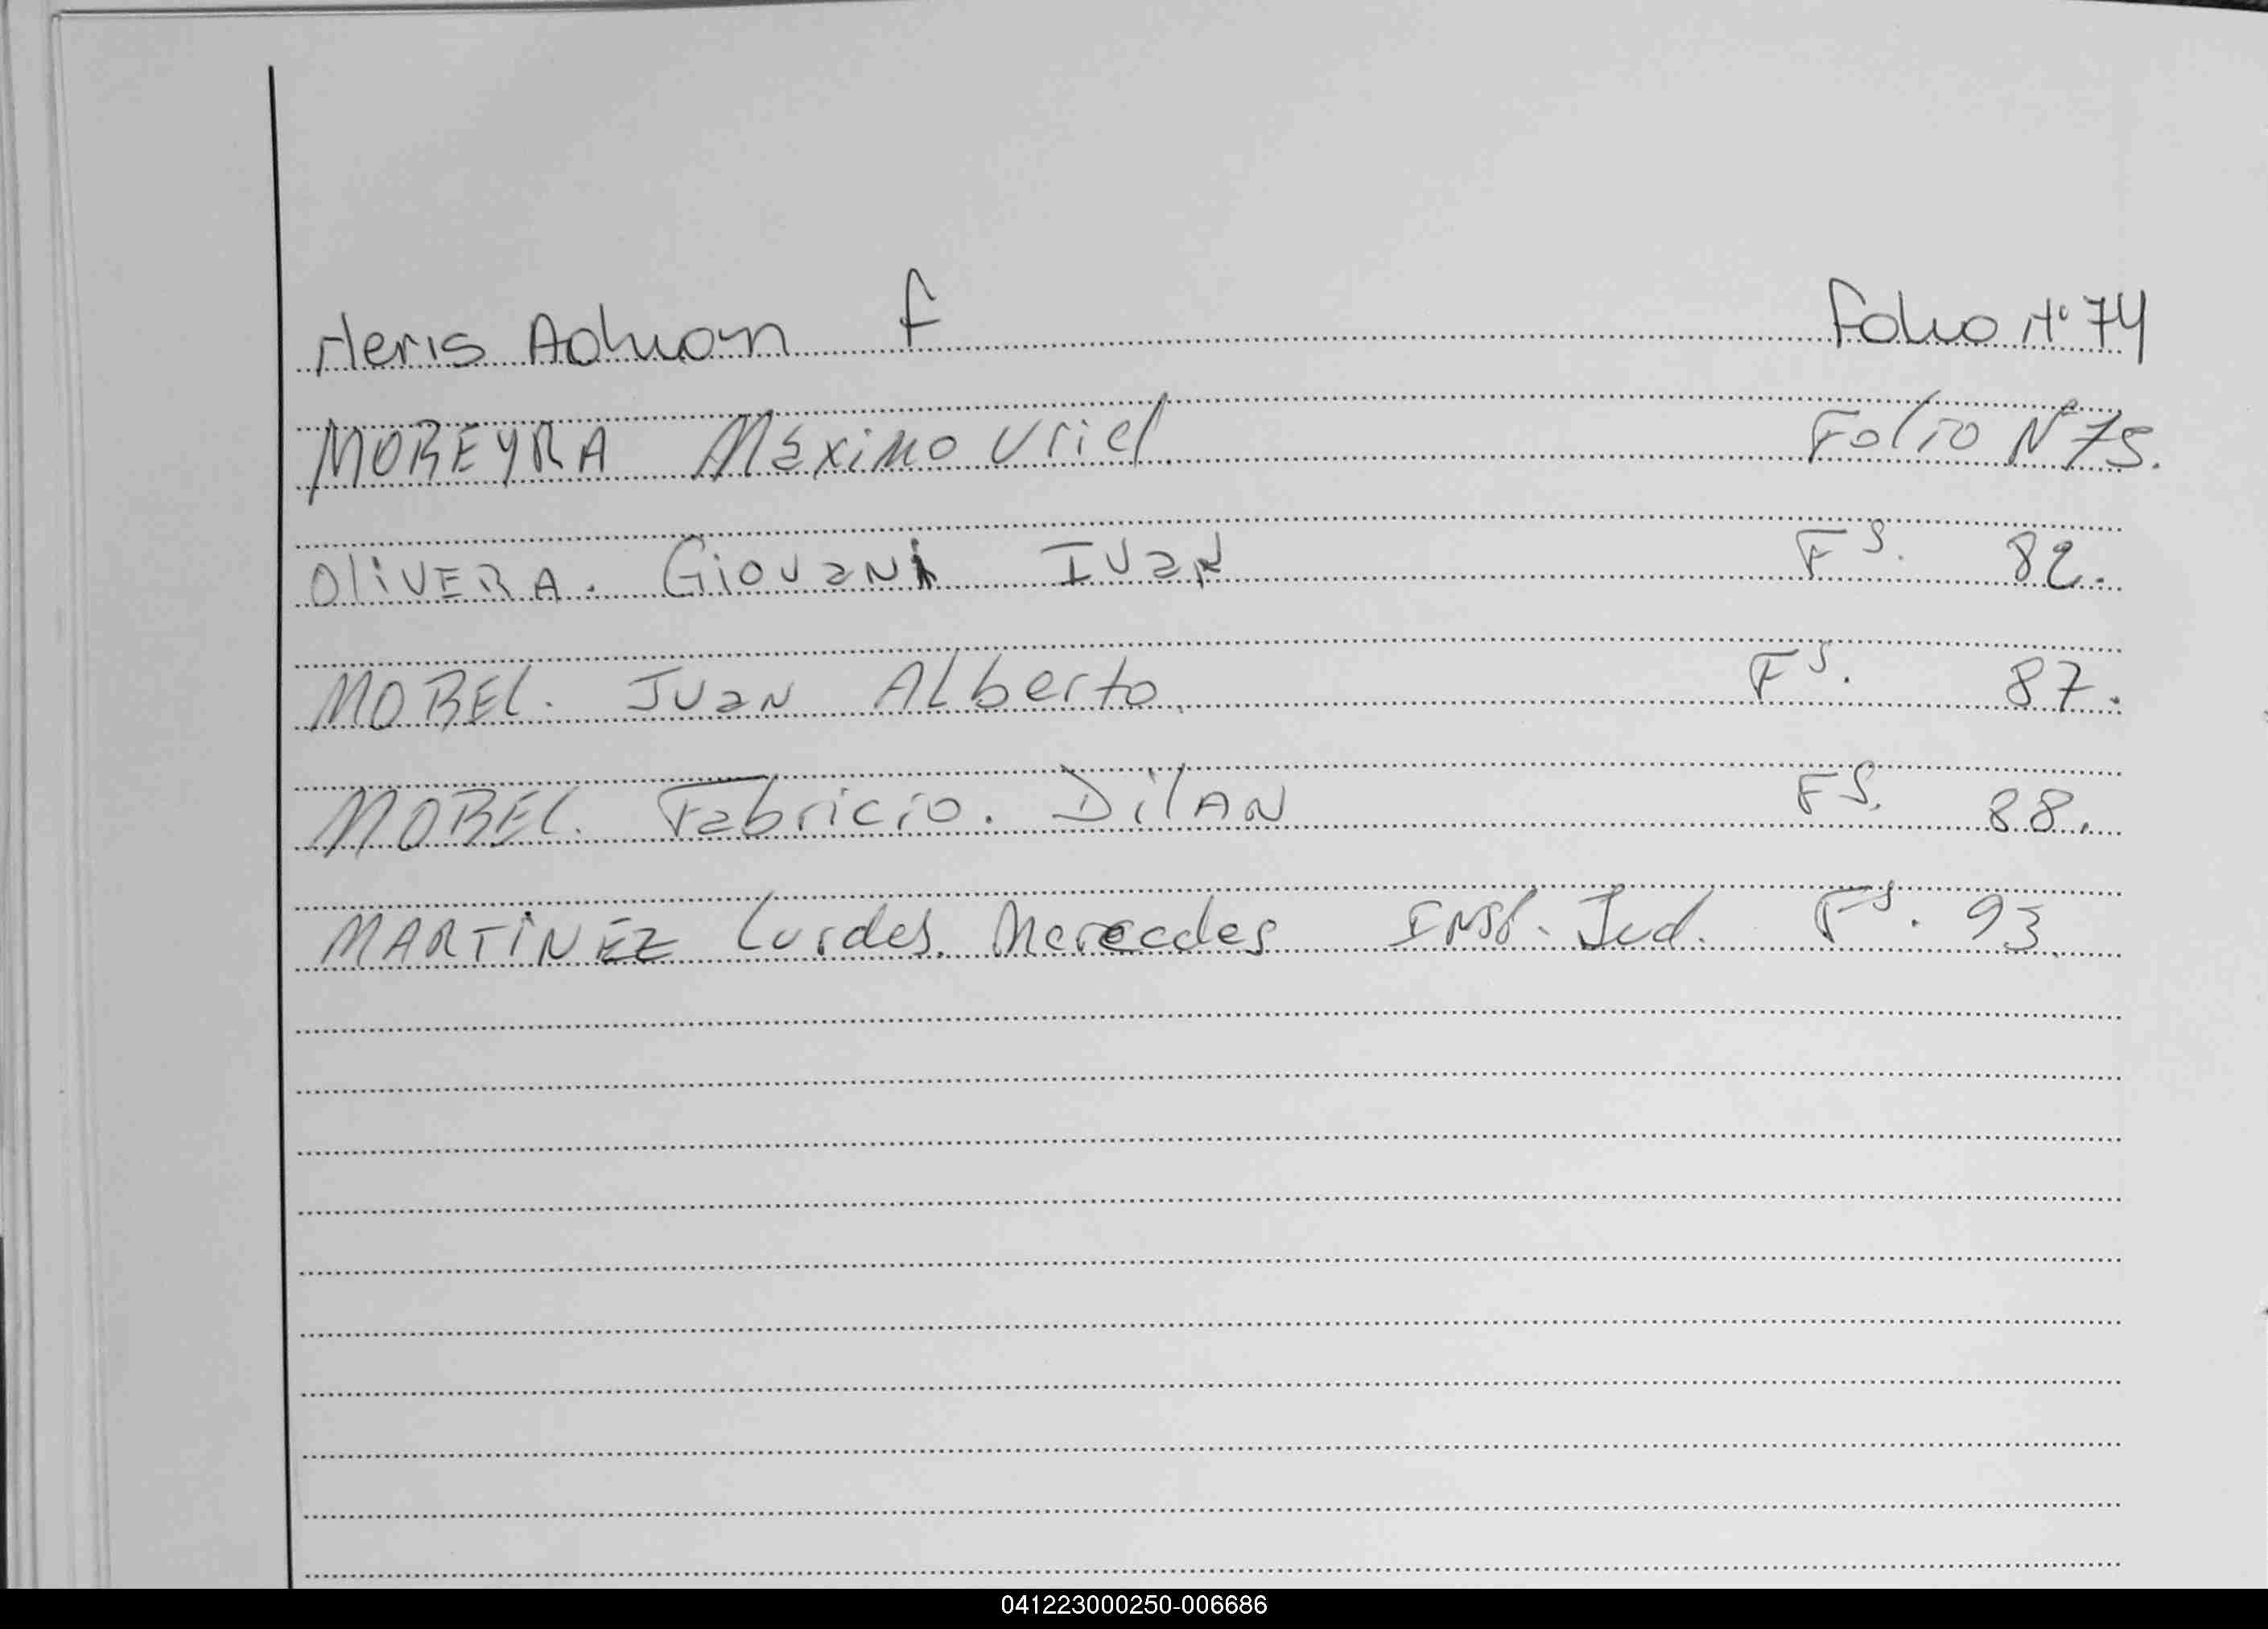 Meris Adrian F Folio N° 74
MOREYRA Máximo Uriel Folio N° 75.
OliVERA. Giovani Ivan Fs. 82.
MOREL. Juan Alberto. Fs. 87.
MOREL. Fabricio. Dilan Fs. 88.
MARTINEZ Lurdes. Mercedes Insc. Jud. Fs. 93.
041223000250-006686